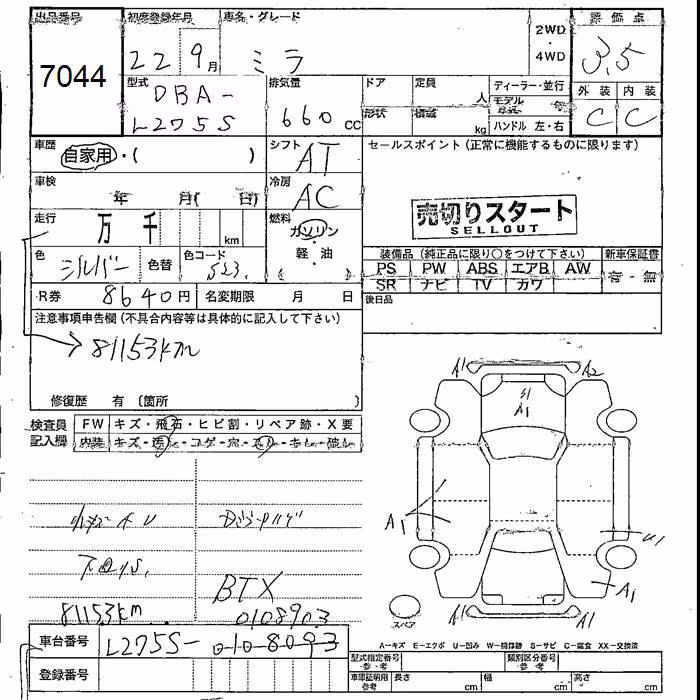 出品番号 7044
初度登録年月 22 9月
車名・グレード ミラ
2WD・4WD
評価点 3.5
外装 C 内装 C
型式 DBA-
L275S
排気量 660 CC
ドア 形状
定員 人 積載 kg
ディーラー・並行
モデル 年
ハンドル 左・右
車歴 自家用・( )
シフト AT
セールスポイント(正常に機能するものに限ります)
車検 年 月( 日)
冷房 AC
売切りスタート
SELLOUT
走行 万 千 km
燃料 ガソリン・軽油
色 シルバー 色替 色コード
装備品(純正品に限り○をつけて下さい) 新車保証書
PS PW ABS エアB AW 有・無
SR ナビ TV カワ
R券 8640円 名変期限 月 日
後日品
注意事項申告欄(不具合内容等は具体的に記入して下さい)
81153km
修復歴 有 (箇所 )
検査員記入欄 FW キズ・飛石・ヒビ割・リペア跡・X要
内装 キズ・汚・コゲ・穴・スレ・キレ・破レ
A1 A2
A1
A1 U1
A1
A1 A1
スペア
BTX
81153km 0108903
車台番号 L275S- 0108093
A-キズ E-エクボ U-凹み W-補修跡 S-サビ C-腐食 XX-交換済
登録番号
型式指定番号 参考 類別区分番号 参考
車庫証明用 参考 長さ cm 幅 cm 高さ cm